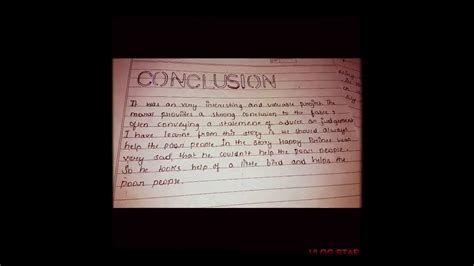 CONCLUSION
It was an very interesting and valuable project. The
moral provides a strong conclusion to the fable &
often conveying a statement of advice or judgement
I have learnt from this story is we should always
help the poor people in the story Happy Prince was
very sad, that he couldn't help the poor people.
So he looks help of a little bird and helps the
poor people.
VLOG STAR